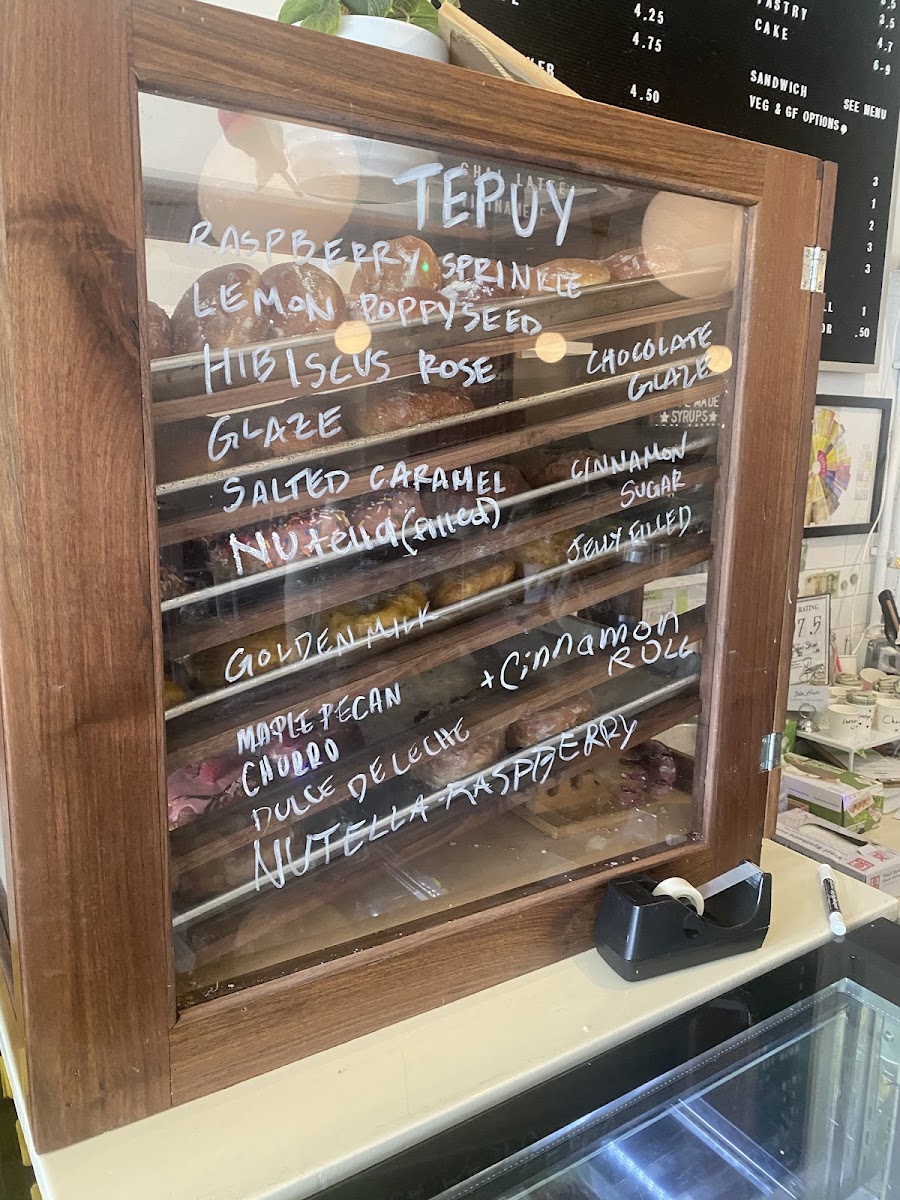 4.25
4.75
4.50
PASTRY
CAKE
3.5
4.7
6-9
SANDWICH SEE MENU
VEG & GF OPTIONS
3
1
2
3
3
1
.50
TEPUY
RASPBERRY SPRINKLE
LEMON POPPYSEED
HIBISCUS ROSE
GLAZE
SALTED CARAMEL
NUtella (filled)
GOLDEN MILK
MAPLE PECAN
CHURRO
DULCE DE LECHE
NUTELLA-RASPBERRY
CHOCOLATE
GLAZE
CINNAMON
SUGAR
JELLY FILLED
+Cinnamon
ROLL
LATTE
MADE
★SYRUPS★
RATING
7.5